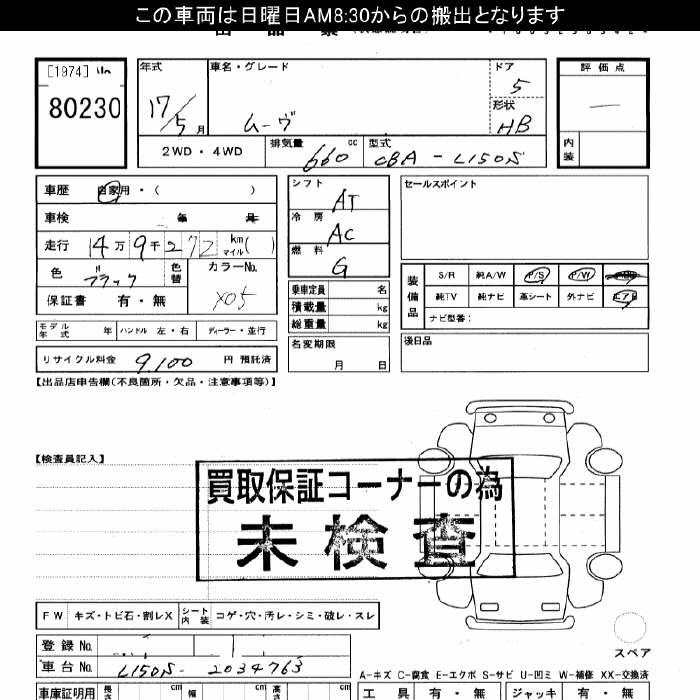 この車両は日曜日AM8:30からの搬出となります
[1974]
80230
年式
17/5 月
車名・グレード
ムーヴ
ドア
5
形状
HB
評価点
内装
2WD・4WD
排気量
660 cc
型式
CBA-L150S
車歴 自家用・( )
車検 年 月
走行 14万9千272 km マイル( )
色 ブラック
色替
カラーNo.
X05
保証書 有・無
モデル年式 年
ハンドル 左・右
ディーラー・並行
リサイクル料金 9,100 円 預託済
シフト AT
冷房 AC
燃料 G
乗車定員 名
積載量 kg
総重量 kg
名変期限
月 日
セールスポイント
装備品
S/R 純A/W P/S P/W
純TV 純ナビ 革シート 外ナビ エアB
ナビ型番:
後日品
【出品店申告欄(不良箇所・欠品・注意事項等)】
【検査員記入】
買取保証コーナーの為
未検査
FW キズ・トビ石・割レX
シート内装 コゲ・穴・汚レ・シミ・破レ・スレ
登録No.
車台No. L150S-2034763
スペア
A-キズ C-腐食 E-エクボ S-サビ U-凹ミ W-補修 XX-交換済
車庫証明用 長さ cm 幅 cm 高さ cm
工具 有・無 ジャッキ 有・無